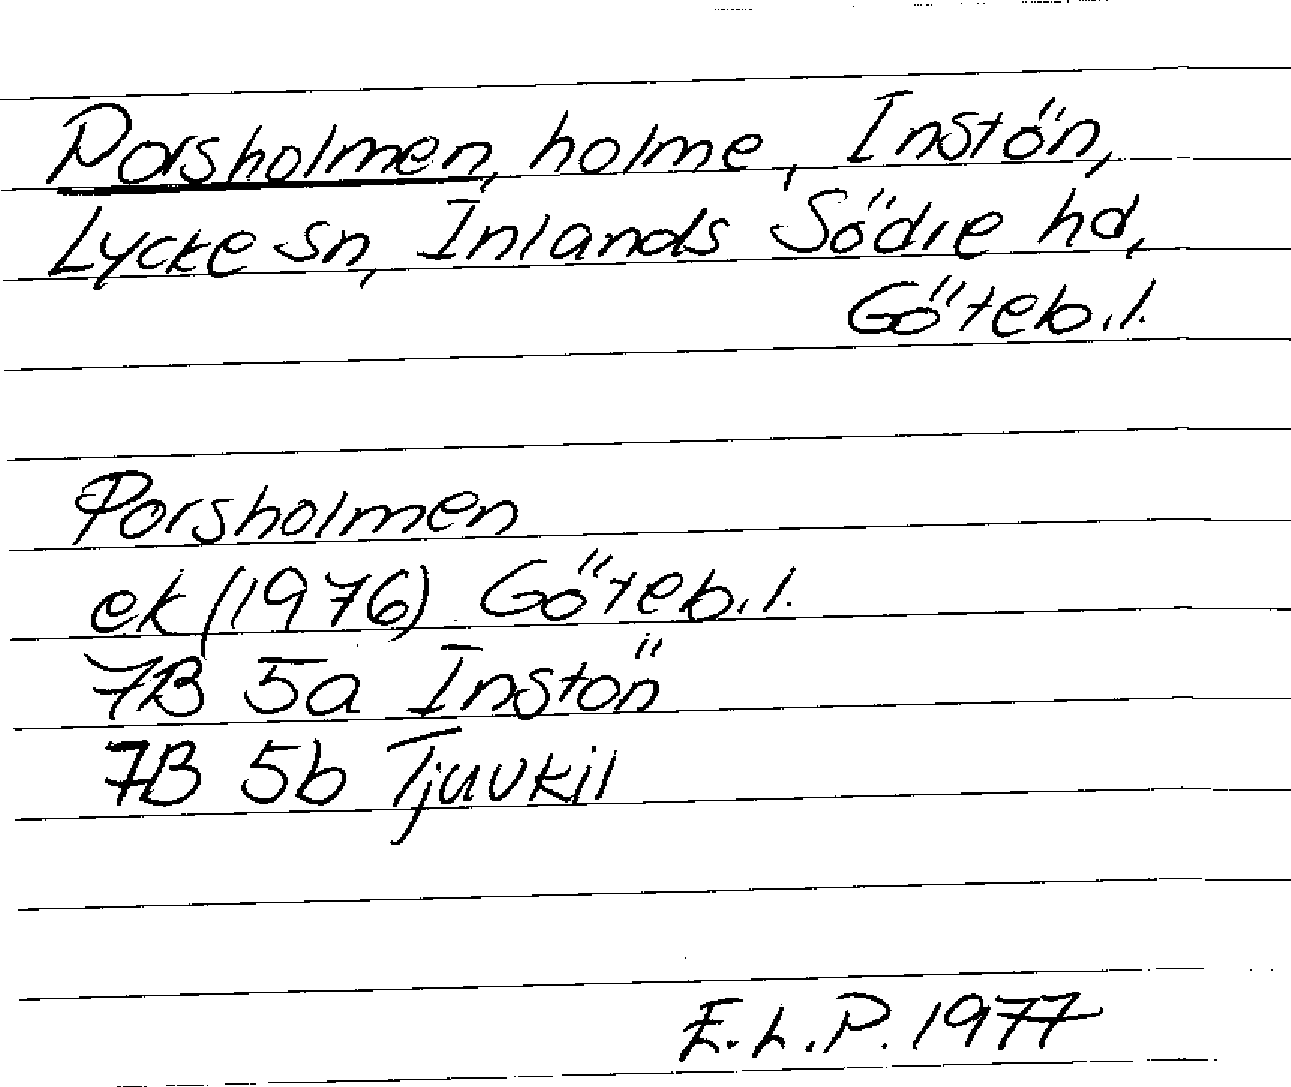 Porsholmen, holme, Instön,
Lycke sn, Inlands Södre hd,
Göteb.l.
Porsholmen
ek (1976) Göteb.l.
7B 5a Instön
7B 5b Tjuvkil
E.L.P. 1977